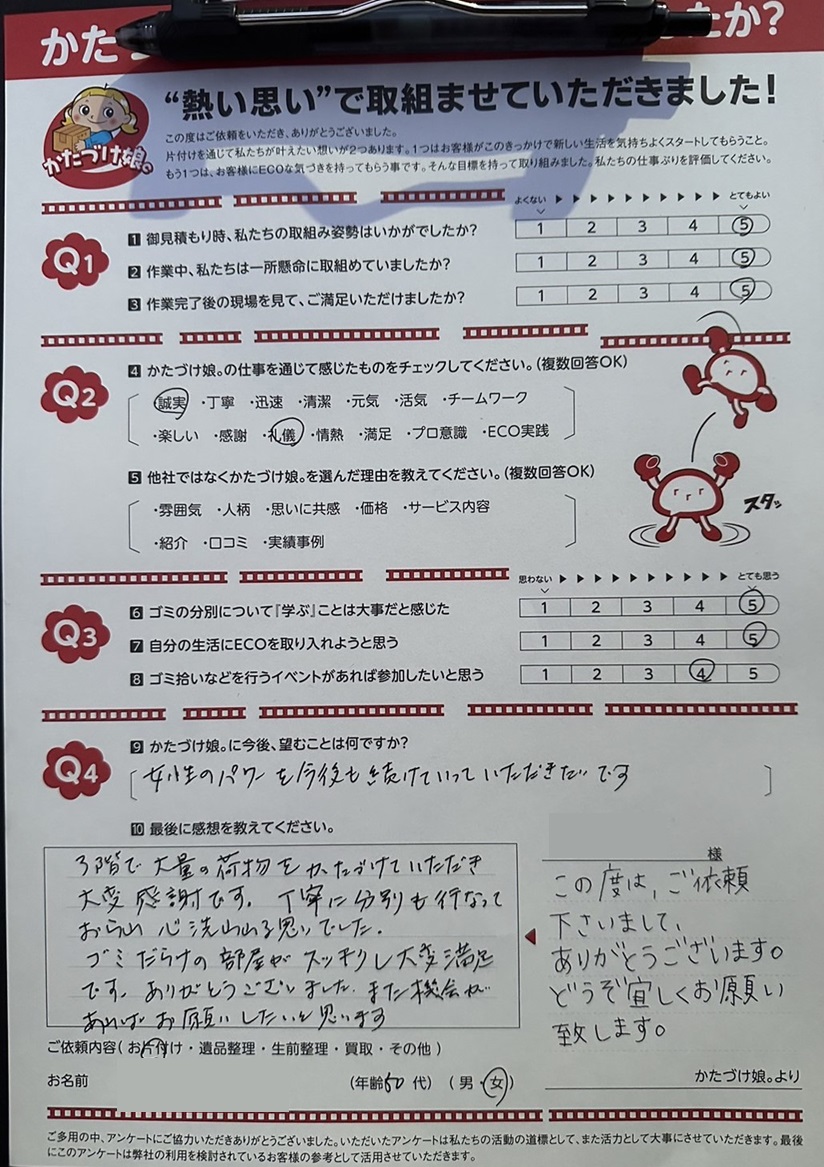 かた
たか?
“熱い思い”で取組ませていただきました!
かたづけ娘。
この度はご依頼をいただき、ありがとうございました。
片付けを通じて私たちが叶えたい想いが2つあります。1つはお客様がこのきっかけで新しい生活を気持ちよくスタートしてもらうこと。
もう1つは、お客様にECOな気づきを持ってもらう事です。そんな目標を持って取り組みました。私たちの仕事ぶりを評価してください。
よくない ▶▶▶▶▶▶▶▶▶▶ とてもよい
Q1
1 御見積もり時、私たちの取組み姿勢はいかがでしたか? 1 2 3 4 5
2 作業中、私たちは一所懸命に取組めていましたか? 1 2 3 4 5
3 作業完了後の現場を見て、ご満足いただけましたか? 1 2 3 4 5
Q2
4 かたづけ娘。の仕事を通じて感じたものをチェックしてください。(複数回答OK)
・誠実 ・丁寧 ・迅速 ・清潔 ・元気 ・活気 ・チームワーク
・楽しい ・感謝 ・礼儀 ・情熱 ・満足 ・プロ意識 ・ECO実践
5 他社ではなくかたづけ娘。を選んだ理由を教えてください。(複数回答OK)
・雰囲気 ・人柄 ・思いに共感 ・価格 ・サービス内容
・紹介 ・口コミ ・実績事例
スタッ
思わない ▶▶▶▶▶▶▶▶▶▶ とても思う
Q3
6 ゴミの分別について『学ぶ』ことは大事だと感じた 1 2 3 4 5
7 自分の生活にECOを取り入れようと思う 1 2 3 4 5
8 ゴミ拾いなどを行うイベントがあれば参加したいと思う 1 2 3 4 5
Q4
9 かたづけ娘。に今後、望むことは何ですか?
女性のパワーを今後も続けていっていただきたいです
10 最後に感想を教えてください。
3階で大量の荷物をかたづけていただき
大変感謝です。丁寧に分別も行なって
おられ心洗われる思いでした。
ゴミだらけの部屋がスッキリし大変満足
です。ありがとうございました。また機会が
あればお願いしたいと思います
様
この度は、ご依頼
下さいまして、
ありがとうございます。
どうぞ宜しくお願い
致します。
かたづけ娘。より
ご依頼内容(お片付け・遺品整理・生前整理・買取・その他)
お名前 (年齢50代) (男・女)
ご多用の中、アンケートにご協力いただきありがとうございました。いただいたアンケートは私たちの活動の道標として、また活力として大事にさせていただきます。最後
にこのアンケートは弊社の利用を検討されているお客様の参考として活用させていただきます。